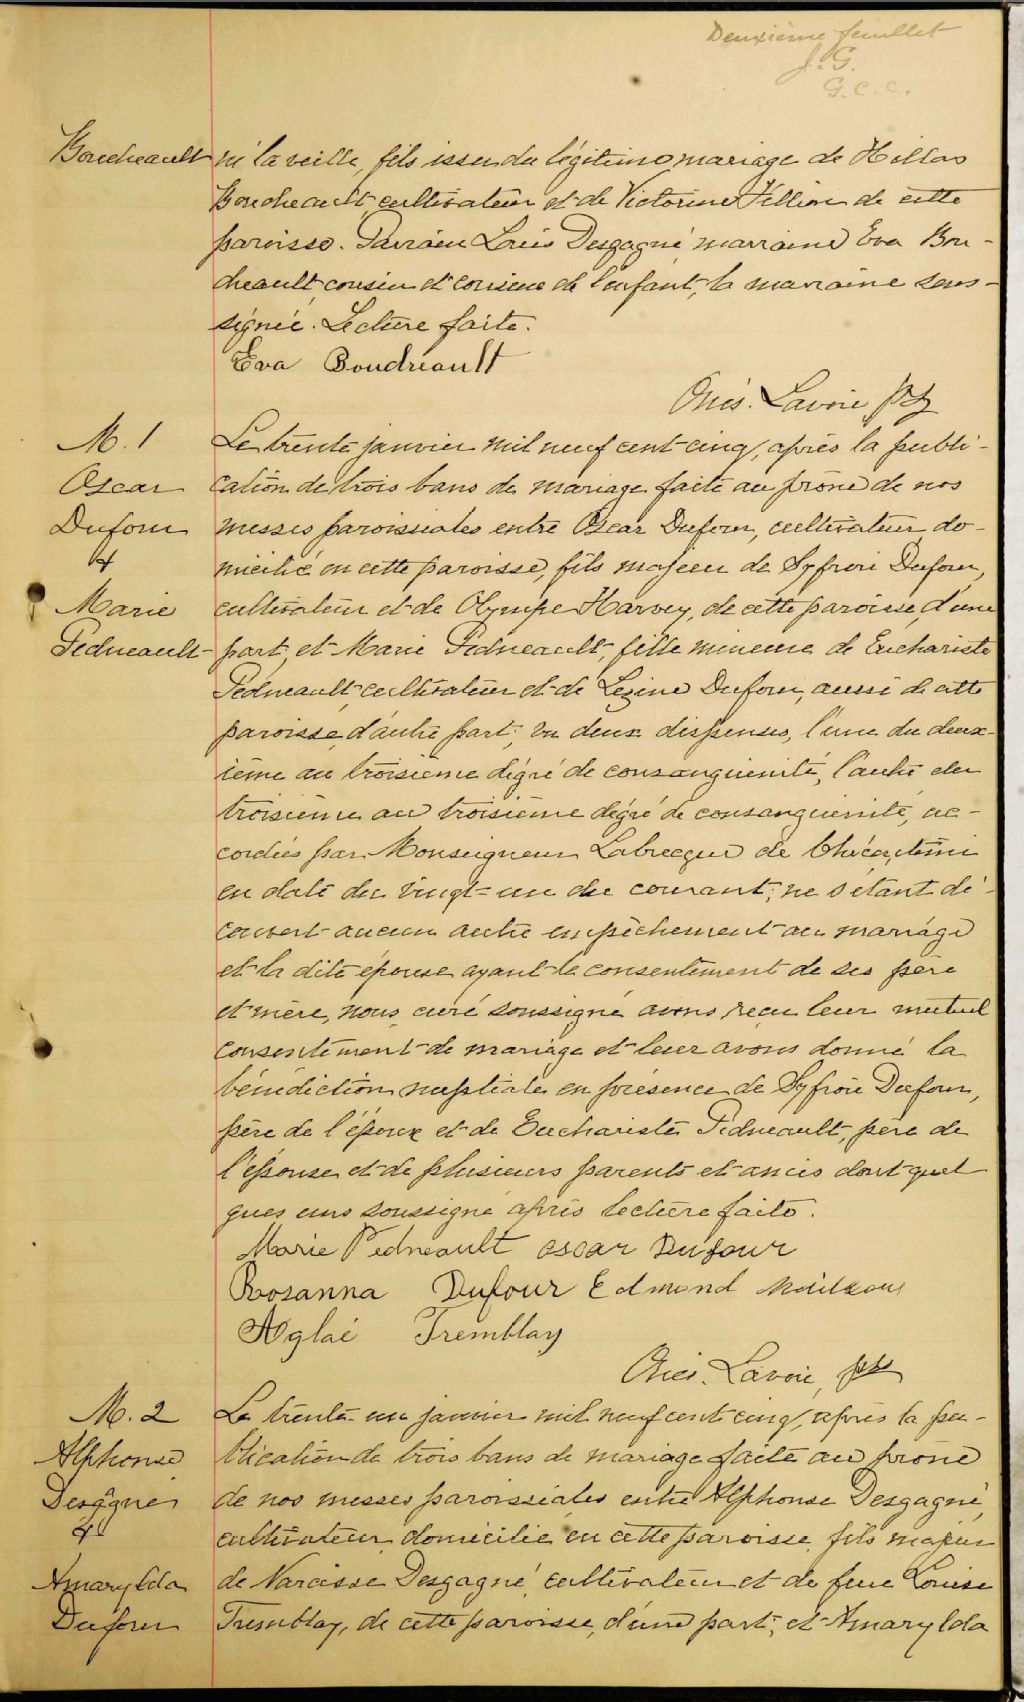 Deuxième feuillet
J. G.
G. C. C.
Boudreault né la veille, fils issu du légitime mariage de
Boudreault, cultivateur et de Victorine Fillion de cette
paroisse. Parrain Louis Desgagné marraine Eva Bou-
dreault cousin et cousine de l'enfant, la marraine sous-
signée. Lecture faite.
Eva Boudreault
Onés. Lavoie ptr
M. 1 Le trente janvier mil neuf cent cinq, après la publi-
Oscar cation de trois bans de mariage faite au prône de nos
Dufour messes paroissiales entre Oscar Dufour, cultivateur do-
& micilié en cette paroisse, fils majeur de Syfroi Dufour,
Marie cultivateur et de Olympe Harvey, de cette paroisse, d'une
Pedneault part, et Marie Pedneault, fille mineure de Euchariste
Pedneault, cultivateur et de Lezine Dufour, aussi de cette
paroisse, d'autre part; vu deux dispenses, l'une du deux-
ième au troisième dégré de consanguinité, l'autre du
troisième au troisième dégré de consanguinité, ac-
cordées par Monseigneur Labrecque de Chicoutimi
en date du vingt-un du courant; ne s'étant dé-
couvert aucun autre empêchement au mariage
et la dite épouse ayant le consentement de ses père
et mère, nous, curé soussigné avons reçu leur mutuel
consentement de mariage et leur avons donné la
bénédiction nuptiale en présence de Syfroi Dufour,
père de l'époux et de Euchariste Pedneault, père de
l'épouse et de plusieurs parents et amis dont quel
ques uns soussigné après lecture faite.
Marie Pedneault Oscar Dufour
Rosanna Dufour Edmond
Aglaé Tremblay
Onés. Lavoie, ptr
M. 2 Le trente-un janvier mil neuf cent cinq, après la pu-
Alphonse blication de trois bans de mariage faite au prône
Desgagné de nos messes paroissiales entre Alphonse Desgagné,
& cultivateur domicilié en cette paroisse, fils majeur
Amarylda de Narcisse Desgagné, cultivateur et de feue Louise
Dufour Tremblay, de cette paroisse, d'une part; et Amarylda